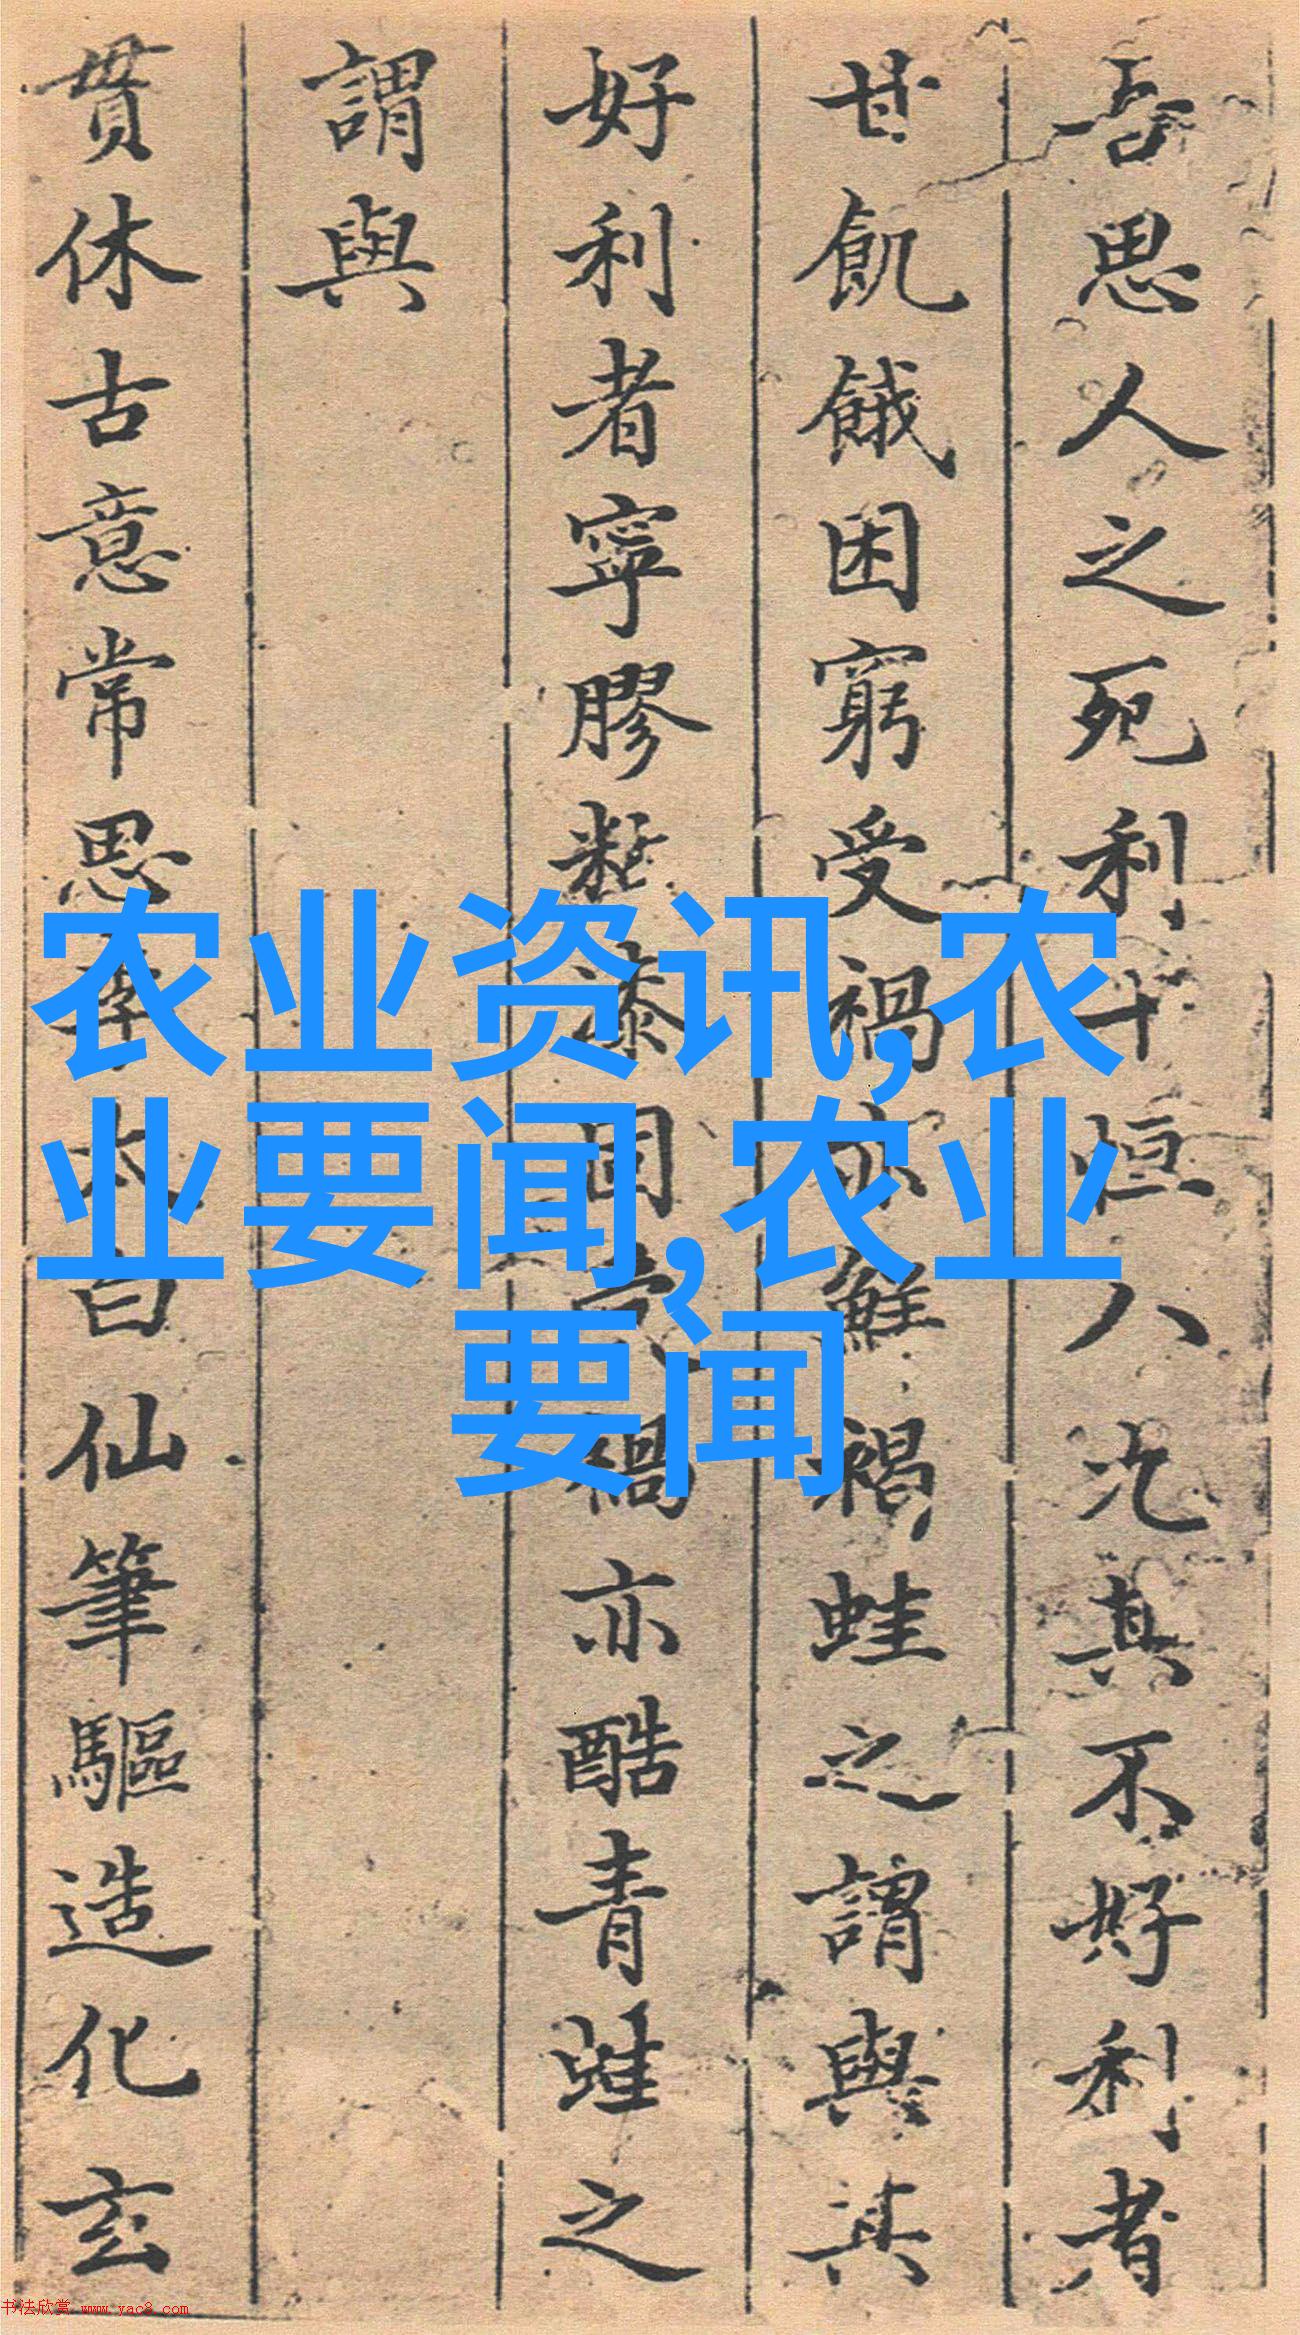 吾思人之死利十恒八其不好利者
甘飢餓困窮受禍亦鮮禍蛙之謂與其
好利者寧膠漆固禍亦酷青蛙之
謂與
貫休古意常思李太白仙筆驅造化玄
农业资讯,农
业要闻,农业
要闻
书法欣赏 www.yac8.com